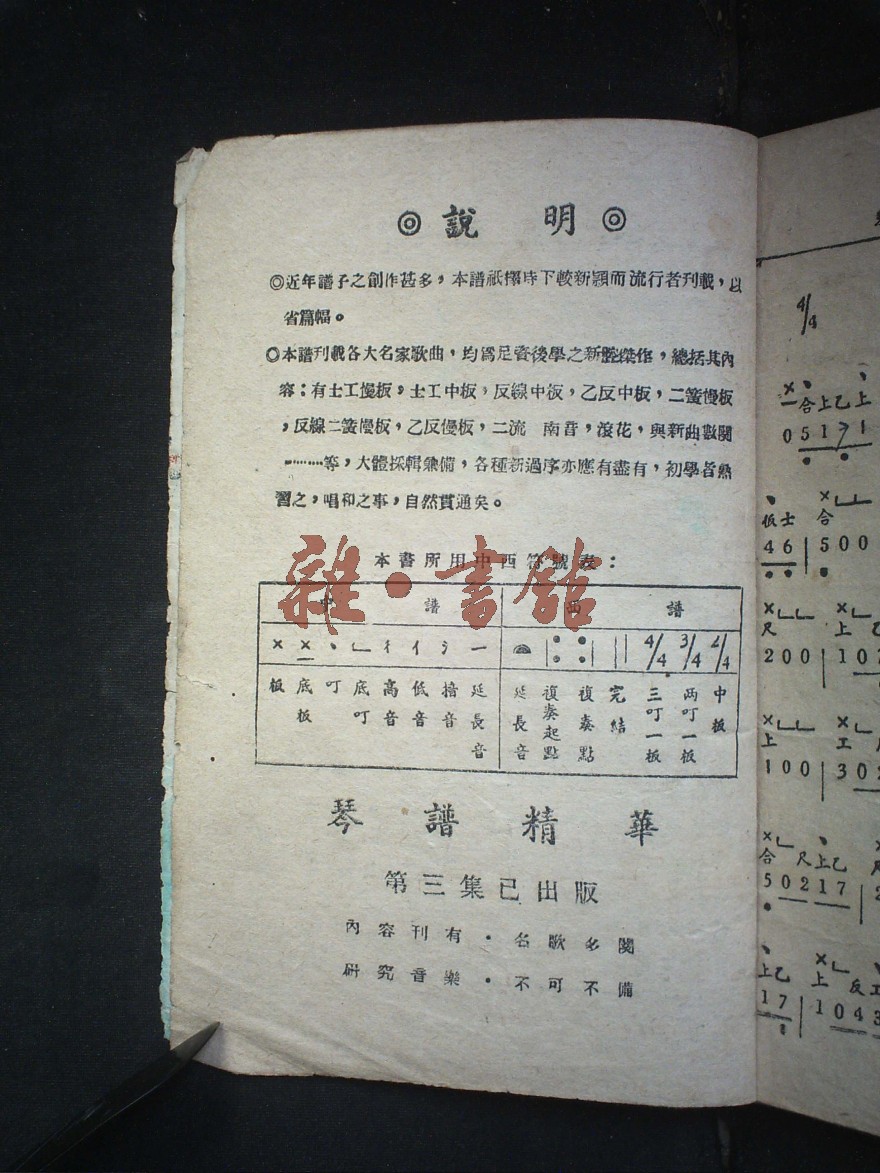 ◎說 明◎
◎近年譜子之創作甚多，本譜祇擇時下較新穎而流行者刊載，以
省篇幅。
◎本譜刊載各大名家歌曲，均爲足資後學之新腔傑作，總括其內
容：有士工慢板，士工中板，反線中板，乙反中板，二簧慢板
，反線二簧慢板，乙反慢板，二流 南音，滾花，與新曲數闋
………等，大體採輯兼備，各種新過序亦應有盡有，初學者熟
習之，唱和之事，自然貫通矣。
本書所用中西符號表：
中 譜 西 譜
× × 、 ㄴ 彳 亻 氵 一 4/4 3/4 2/4
板 底板 叮 底叮 高音 低音 擔音 延長音 延長音 複奏起點 複奏點 完結 三叮一板 两叮一板 中板
琴譜精華
第三集已出版
內容刊有・名歌多闋
研究音樂・不可不備
雜・書館
4/4
合上乙上
0 5 1 7 1
板士 合
4 6 | 5 0 0
尺 上
2 0 0 | 1 0
上 工
1 0 0 | 3 0
合 尺上乙
5 0 2 1 7
上乙 上 反工
1 7 | 1 0 4 3